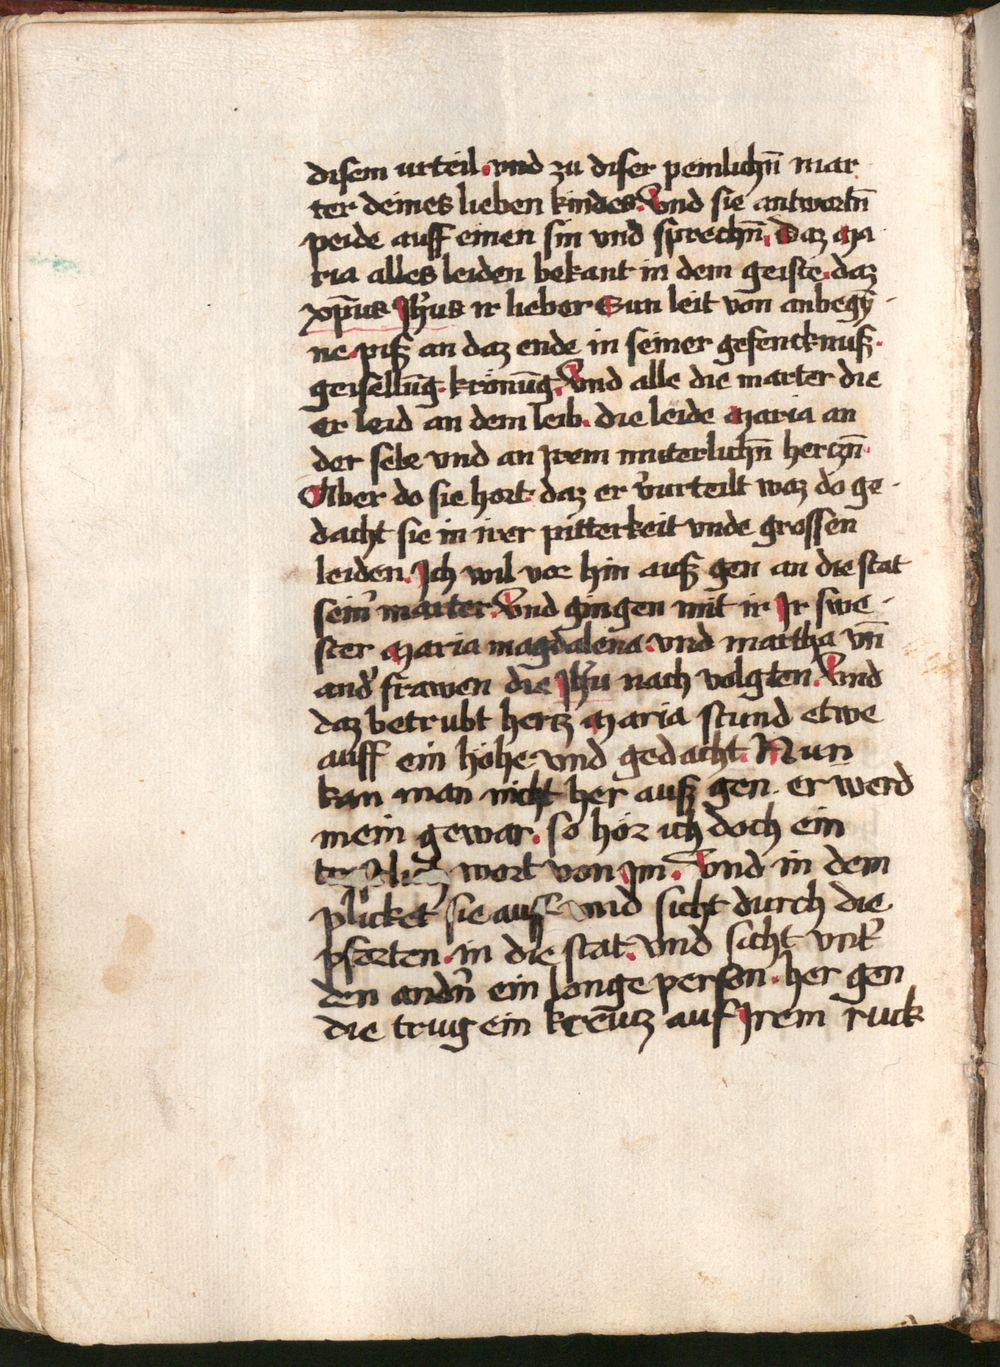 disem urteil. vnd zu diser peinlichn̄ mar
ter deines lieben kindes. Vnd sie antwortn̄
peide auff einen sin vnd sprechn̄. Daz Ma
ria alles leiden bekant in dem geiste. daz
xp̄us Jh̄us ir lieber Sun leit von anbegȳ
ne. piß an daz ende in seiner gefencknuß.
geisellūg. krönūg. Vnd alle die marter die
er leid an dem leib. die leide Maria an
der sele vnd an Jrem muterlichn̄ herczn̄.
Aber do sie hort. daz er v̓urteilt waz do ge
dacht sie in irer pitterkeit vnde grossen
leiden. Jch wil vor hin auß gen an die stat
sein̓ marter. Vnd gingen mit ir Jr swe
ster Maria magdalena. vnd martha vn̄
and̓ frawen die Jh̄u nach volgten. Vnd
daz betrubt hertz Maria stund etwe
auff ein höhe vnd gedacht. Nun
kan man nicht her auß gen. er werd
mein gewar. so hör ich doch ein
wort von Jm. Vnd in dem
plicket̓ sie auff vnd sicht durch die
pforten. in die stat. vnd sicht vnt̓
den andn̓ ein longe person. her gen
die trug ein krēutz auf Jrem ruck